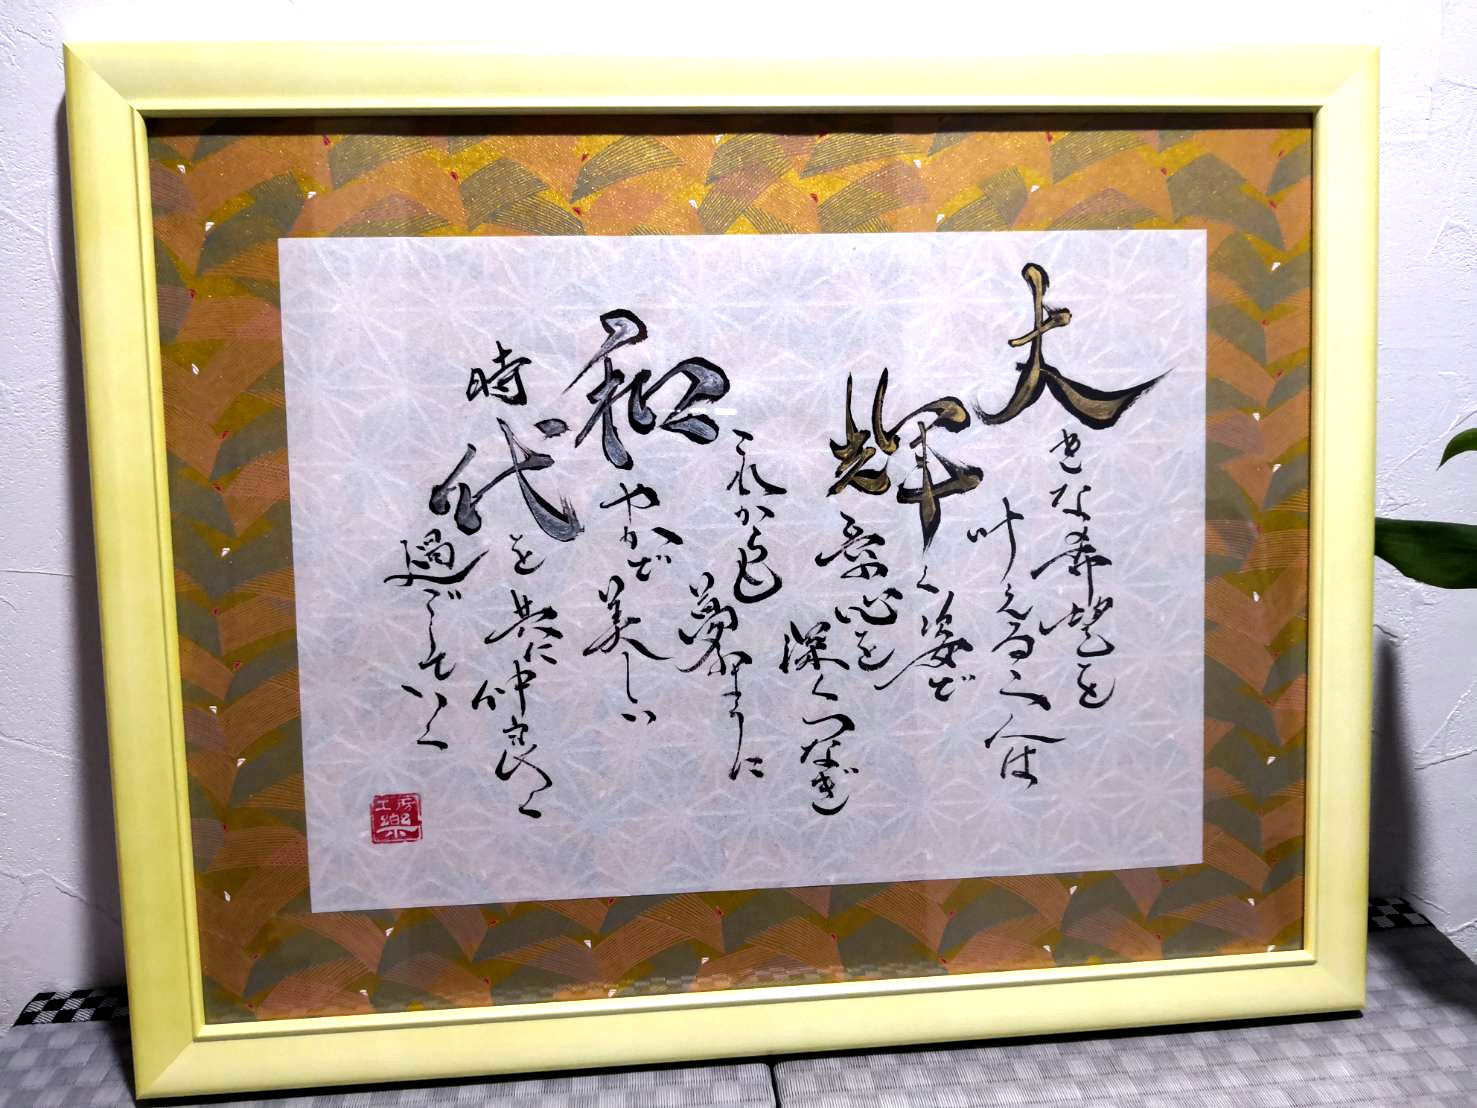 大きな希望を
叶える人は
輝く姿で
愛心を
深くつなぎ
これからも
夢のように
和やかで美しい
時代を共に仲良く
過ごしていく
工房
樂